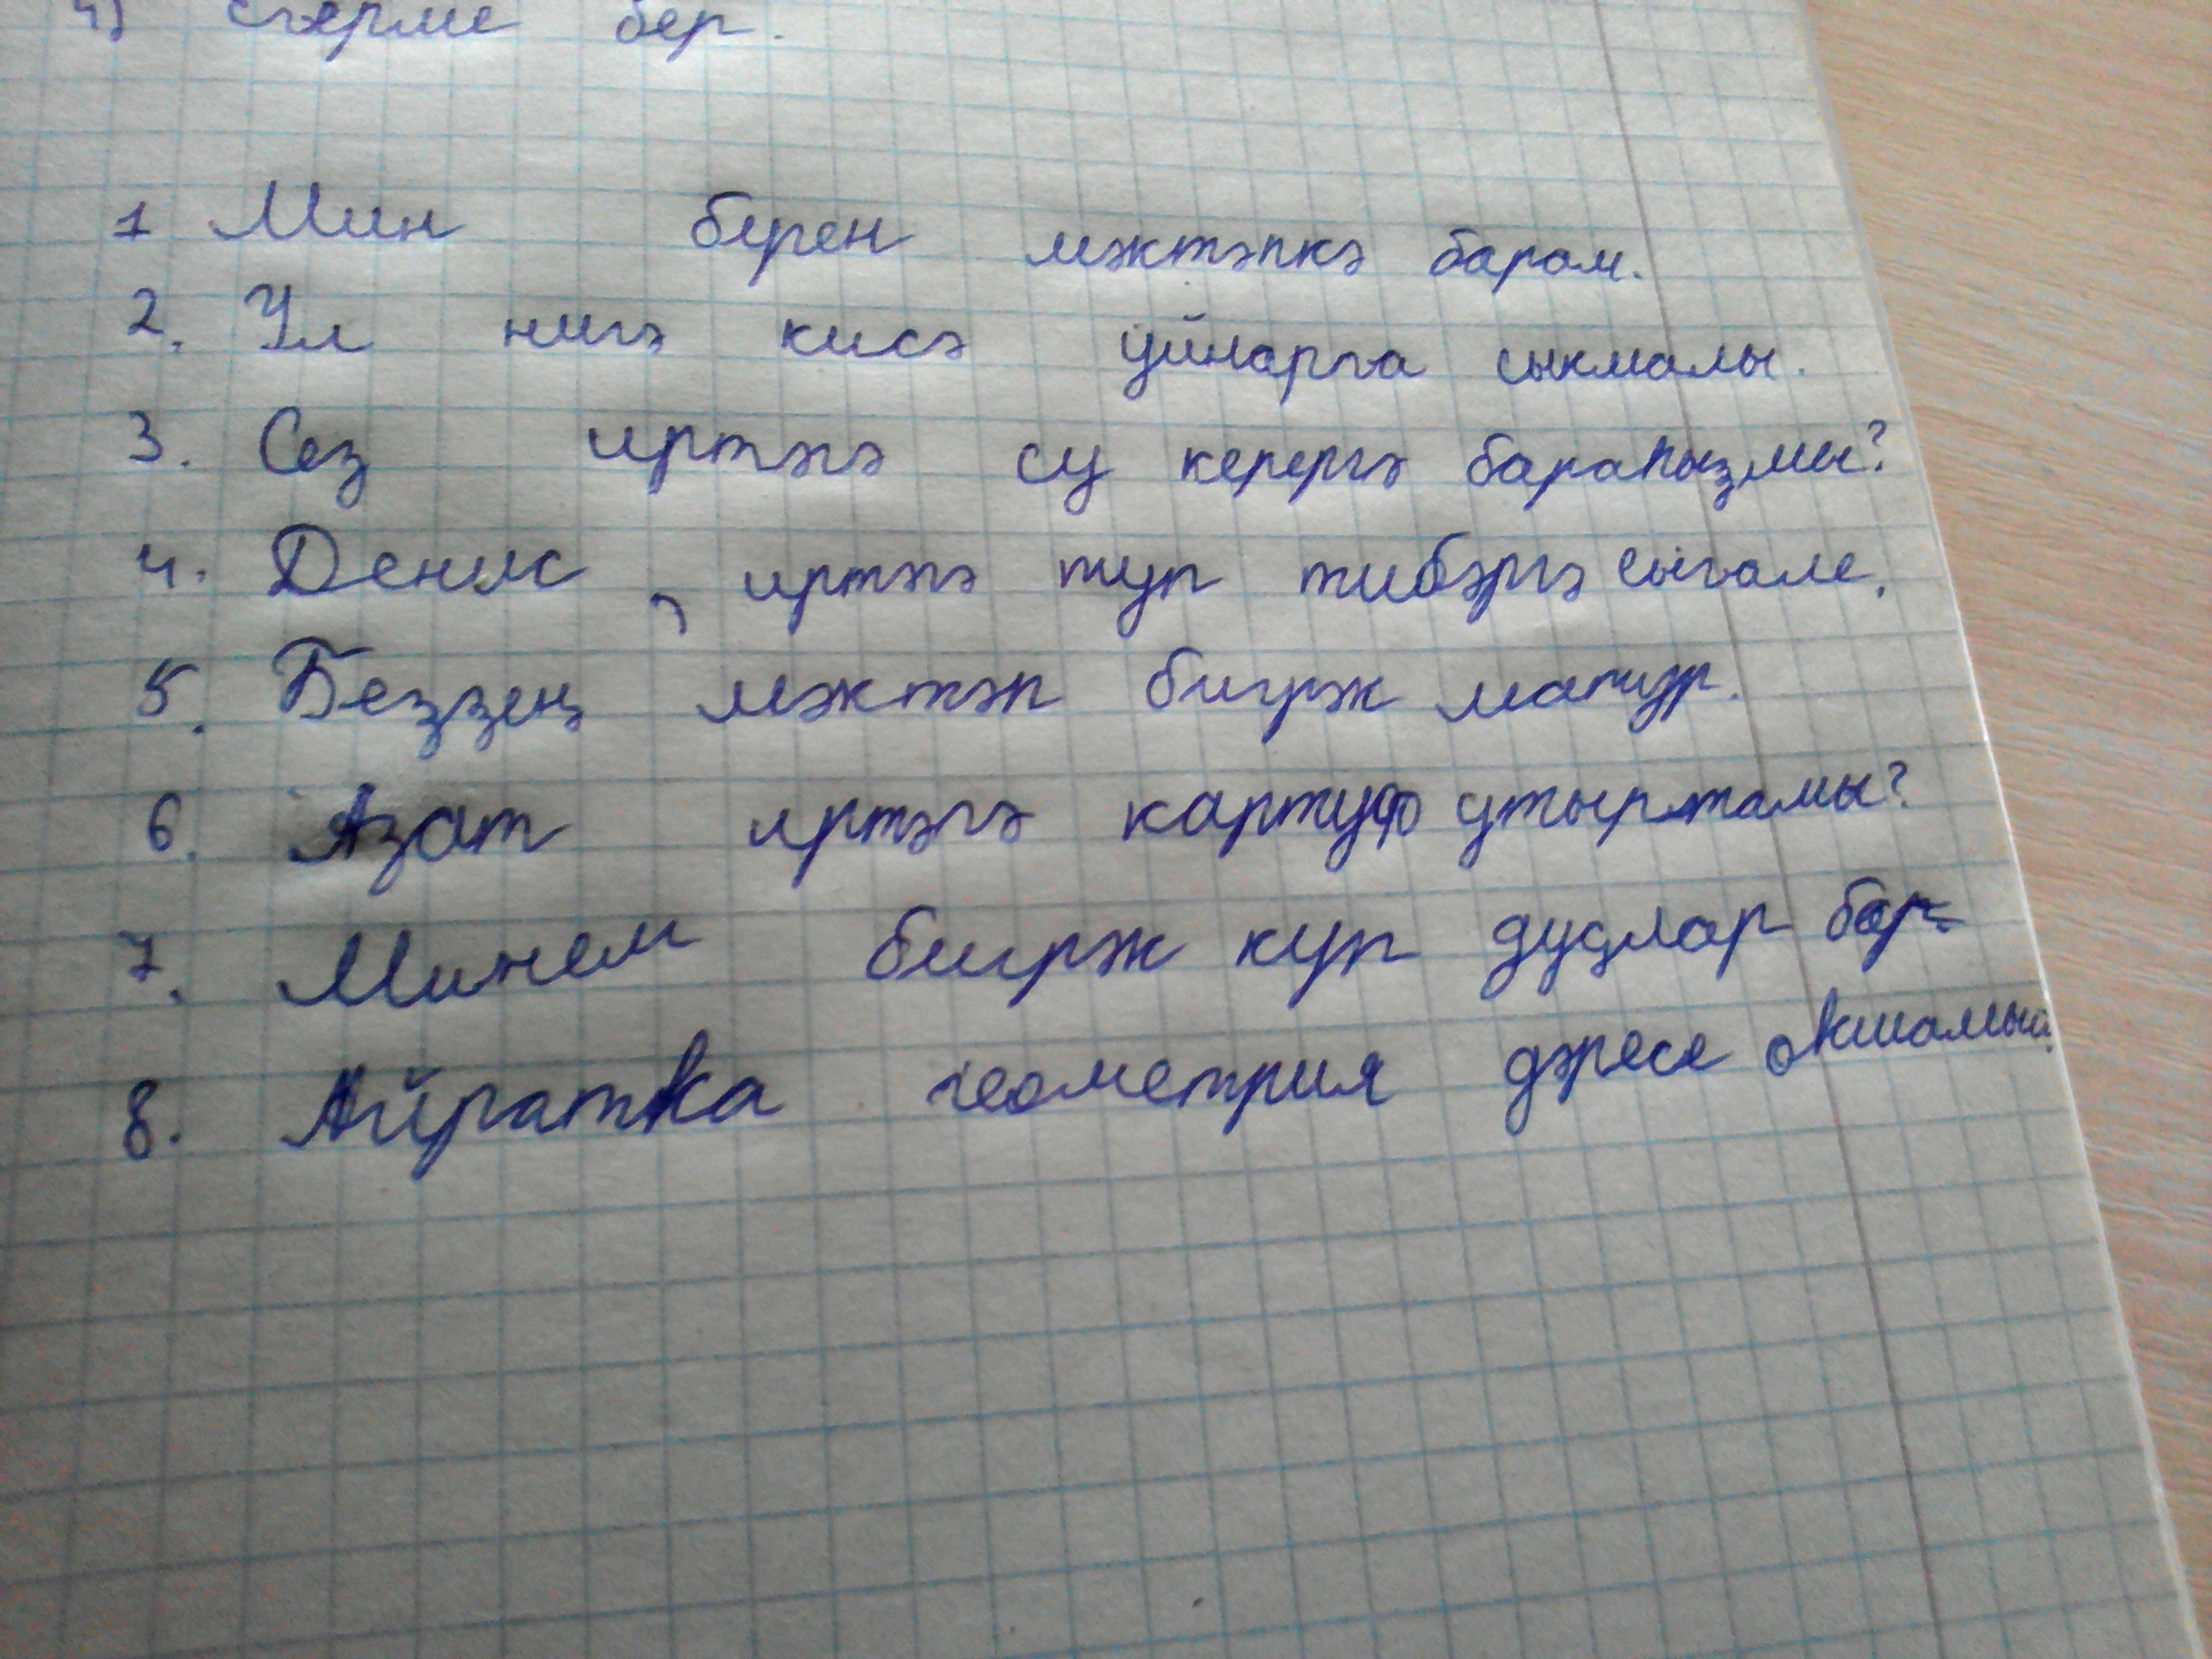 4) егерме бер.
1 Мин бөген мәктәпкә барам.
2. Ул нигә кисә уйнарға сыкманы.
3. Сез иртәгә су керергә бараһыҙмы?
4. Денис, иртәгә туп тибәргә сығале.
5. Беҙҙең мәктәп бигрәк матур.
6. Азат иртәгә картуф утыртамы?
7. Минем бигрәк күп дуҫлар бар.
8. Айратка геометрия дәресе